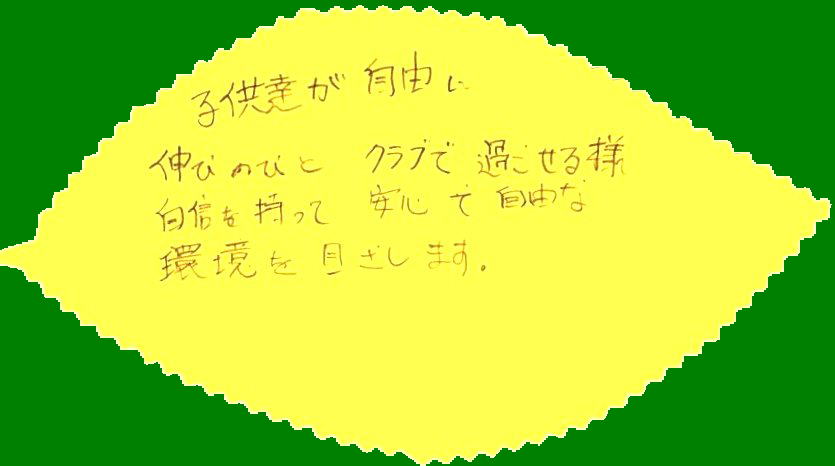 子供達が 自由に
伸びのびと クラブで 過ごせる様
自信を持って 安心で自由な
環境を目ざします。